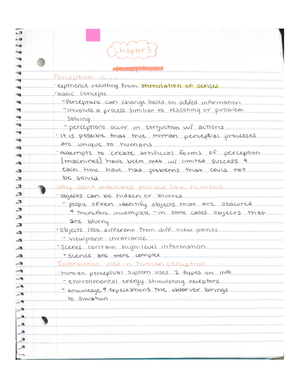 Chapter 3
Perception is...
· experience resulting from stimulation of senses
· basic concepts
- Perceptions can change based on added information
- involves a process similar to reasoning or problem
solving
- perceptions occur in conjuction w/ actions
· it is possible that true human perceptual processes
are unique to humans
· attempts to create artificial forms of perception
(machines) have been met w/ limited success &
each time have had problems that could not
be solved
Why can't machines perceive like humans
· objects can be hidden or blurred
- people often identify objects that are obscured
& therefore incomplete - in some cases objects that
are blurry
· Objects look different from diff view points
- viewpoint invariance
· Scenes contain high-level information
- Scenes are more complex
Information used in human perception
· Human perceptual system uses 2 types on info
- environmental energy stimulating receptors
- knowledge & expectations the observer brings
to situation